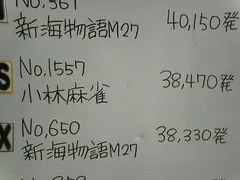 No,361
新海物語M27 40,150発
S No,1557
小林麻雀 38,470発
X No,650
新海物語M27 38,330発